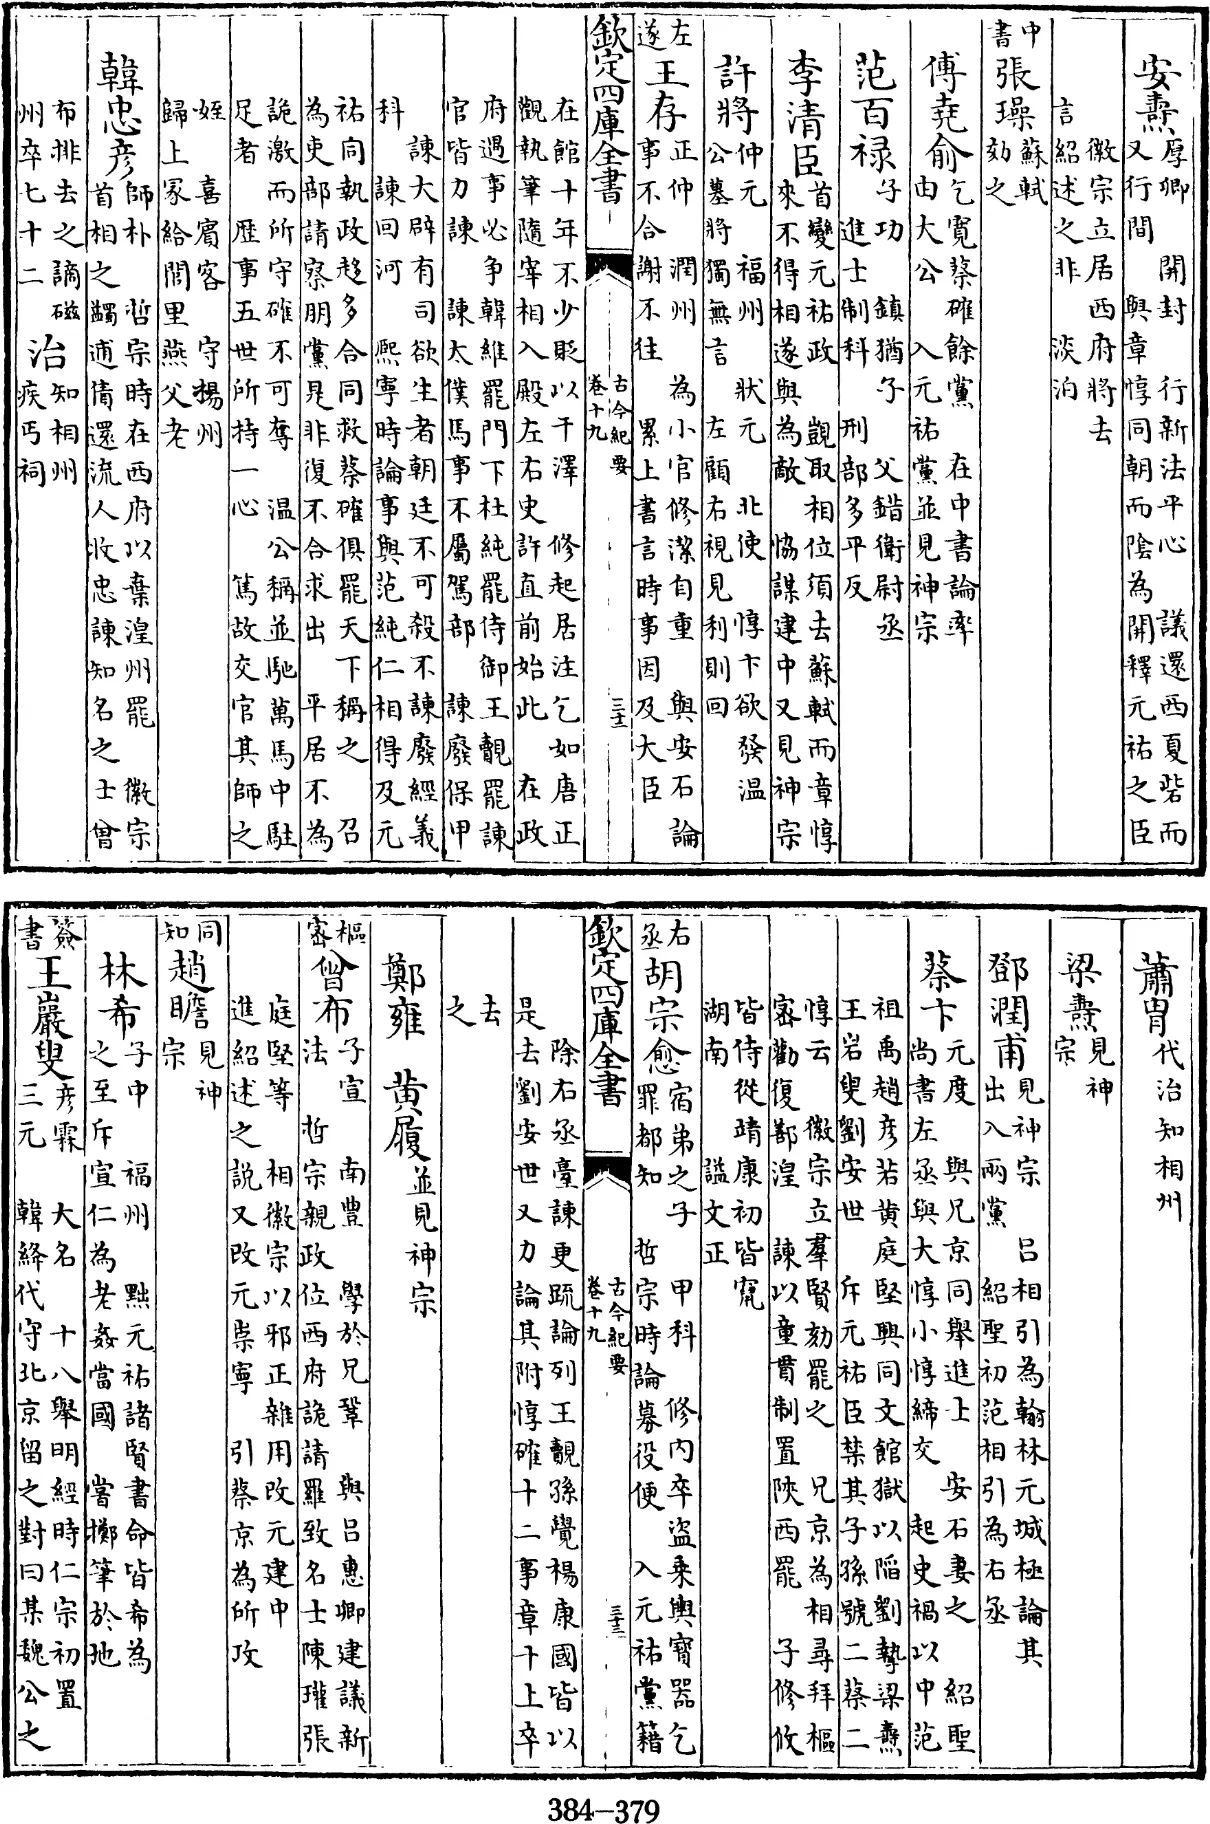 安燾厚卿　開封　行新法平心　議還西夏砦而
又行間　與章惇同朝而陰為開釋元祐之臣
徽宗立居西府將去
言紹述之非　淡泊
中書張璪蘇軾
劾之
傅堯俞乞寛蔡確餘黨　在中書論率
由大公　入元祐黨並見神宗
范百祿子功　鎮猶子　父鍇衛尉丞
進士制科　刑部多平反
李清臣首變元祐政　覬取相位須去蘇軾而章惇
來不得相遂與為敵　協謀建中又見神宗
許將仲元　福州　狀元　北使　惇卞欲發温
公墓將獨無言　左顧右視見利則回
左丞王存正仲　潤州　為小官修潔自重　與安石論
事不合謝不往　累上書言時事因及大臣
欽定四庫全書　古今紀要卷十九　三十二
在館十年不少貶以干澤　修起居注乞如唐正
觀執筆隨宰相入殿左右史許直前始此　在政
府遇事必争韓維罷門下杜純罷侍御王覿罷諫
官皆力諫　諫太僕馬事不屬駕部　諫廢保甲
諫大辟有司欲生者朝廷不可殺不諫廢經義
科　諫回河　熙寧時論事與范純仁相得及元
祐同執政趍多合同救蔡確俱罷天下稱之　召
為吏部請察朋黨是非復不合求出　平居不為
詭激而所守確不可奪　温公稱並馳萬馬中駐
足者　歴事五世所持一心　篤故交官其師之
姪　喜賓客　守揚州
歸上冢給閭里燕父老
韓忠彦師朴　哲宗時在西府以棄湟州罷　徽宗
首相之蠲逋債還流人收忠諫知名之士曾
布排去之謫磁
州卒七十二　治知相州
疾丐祠
蕭冑代治知相州
梁燾見神
宗
鄧潤甫見神宗　吕相引為翰林元城極論其
出入兩黨　紹聖初范相引為右丞
蔡卞元度　與兄京同舉進士　安石妻之　紹聖
尚書左丞與大惇小惇締交　起史禍以中范
祖禹趙彦若黄庭堅興同文館獄以陷劉摯梁燾
王岩叟劉安世　斥元祐臣禁其子孫號二蔡二
惇云　徽宗立羣賢劾罷之　兄京為相尋拜樞
密勸復鄯湟　諫以童貫制置陜西罷　子修攸
皆侍從靖康初皆竄
湖南　謚文正
右丞胡宗愈宿弟之子　甲科　修内卒盗乗輿寳器乞
罪都知　哲宗時論募役便　入元祐黨籍
欽定四庫全書　古今紀要卷十九　三十三
除右丞臺諫更疏論列王覿孫覺楊康國皆以
是去劉安世又力論其附惇確十二事章十上卒
去
之
鄭雍　黄履並見神宗
樞密曾布子宣　南豐　學於兄鞏　與吕惠卿建議新
法　哲宗親政位西府詭請羅致名士陳瓘張
庭堅等　相徽宗以邪正雜用改元建中
進紹述之説又改元崇寧　引蔡京為所攻
同知趙瞻見神
宗
林希子中　福州　黜元祐諸賢書命皆希為
之至斥宣仁為老姦當國　嘗擲筆於地
簽書王巖叟彦霖　大名　十八舉明經時仁宗初置
三元　韓絳代守北京留之對曰某魏公之
384—379